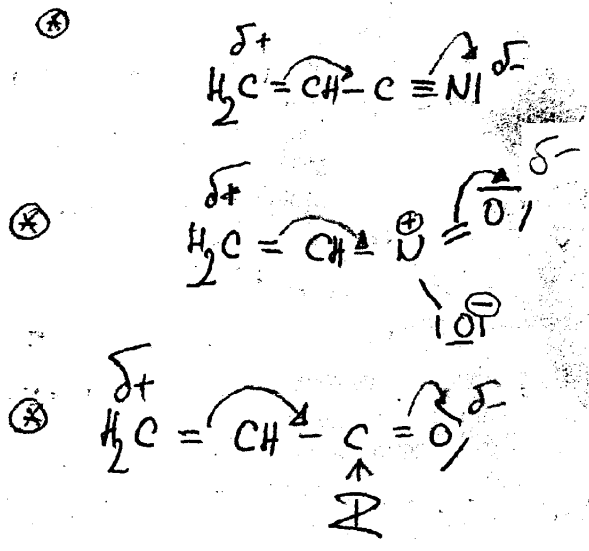 ⊛
δ+
H₂C = CH – C ≡ N| δ–
⊛
δ+ δ–
H₂C = CH – N⊕ = O
|O|⊖
⊛
δ+ δ–
H₂C = CH – C = O
↑